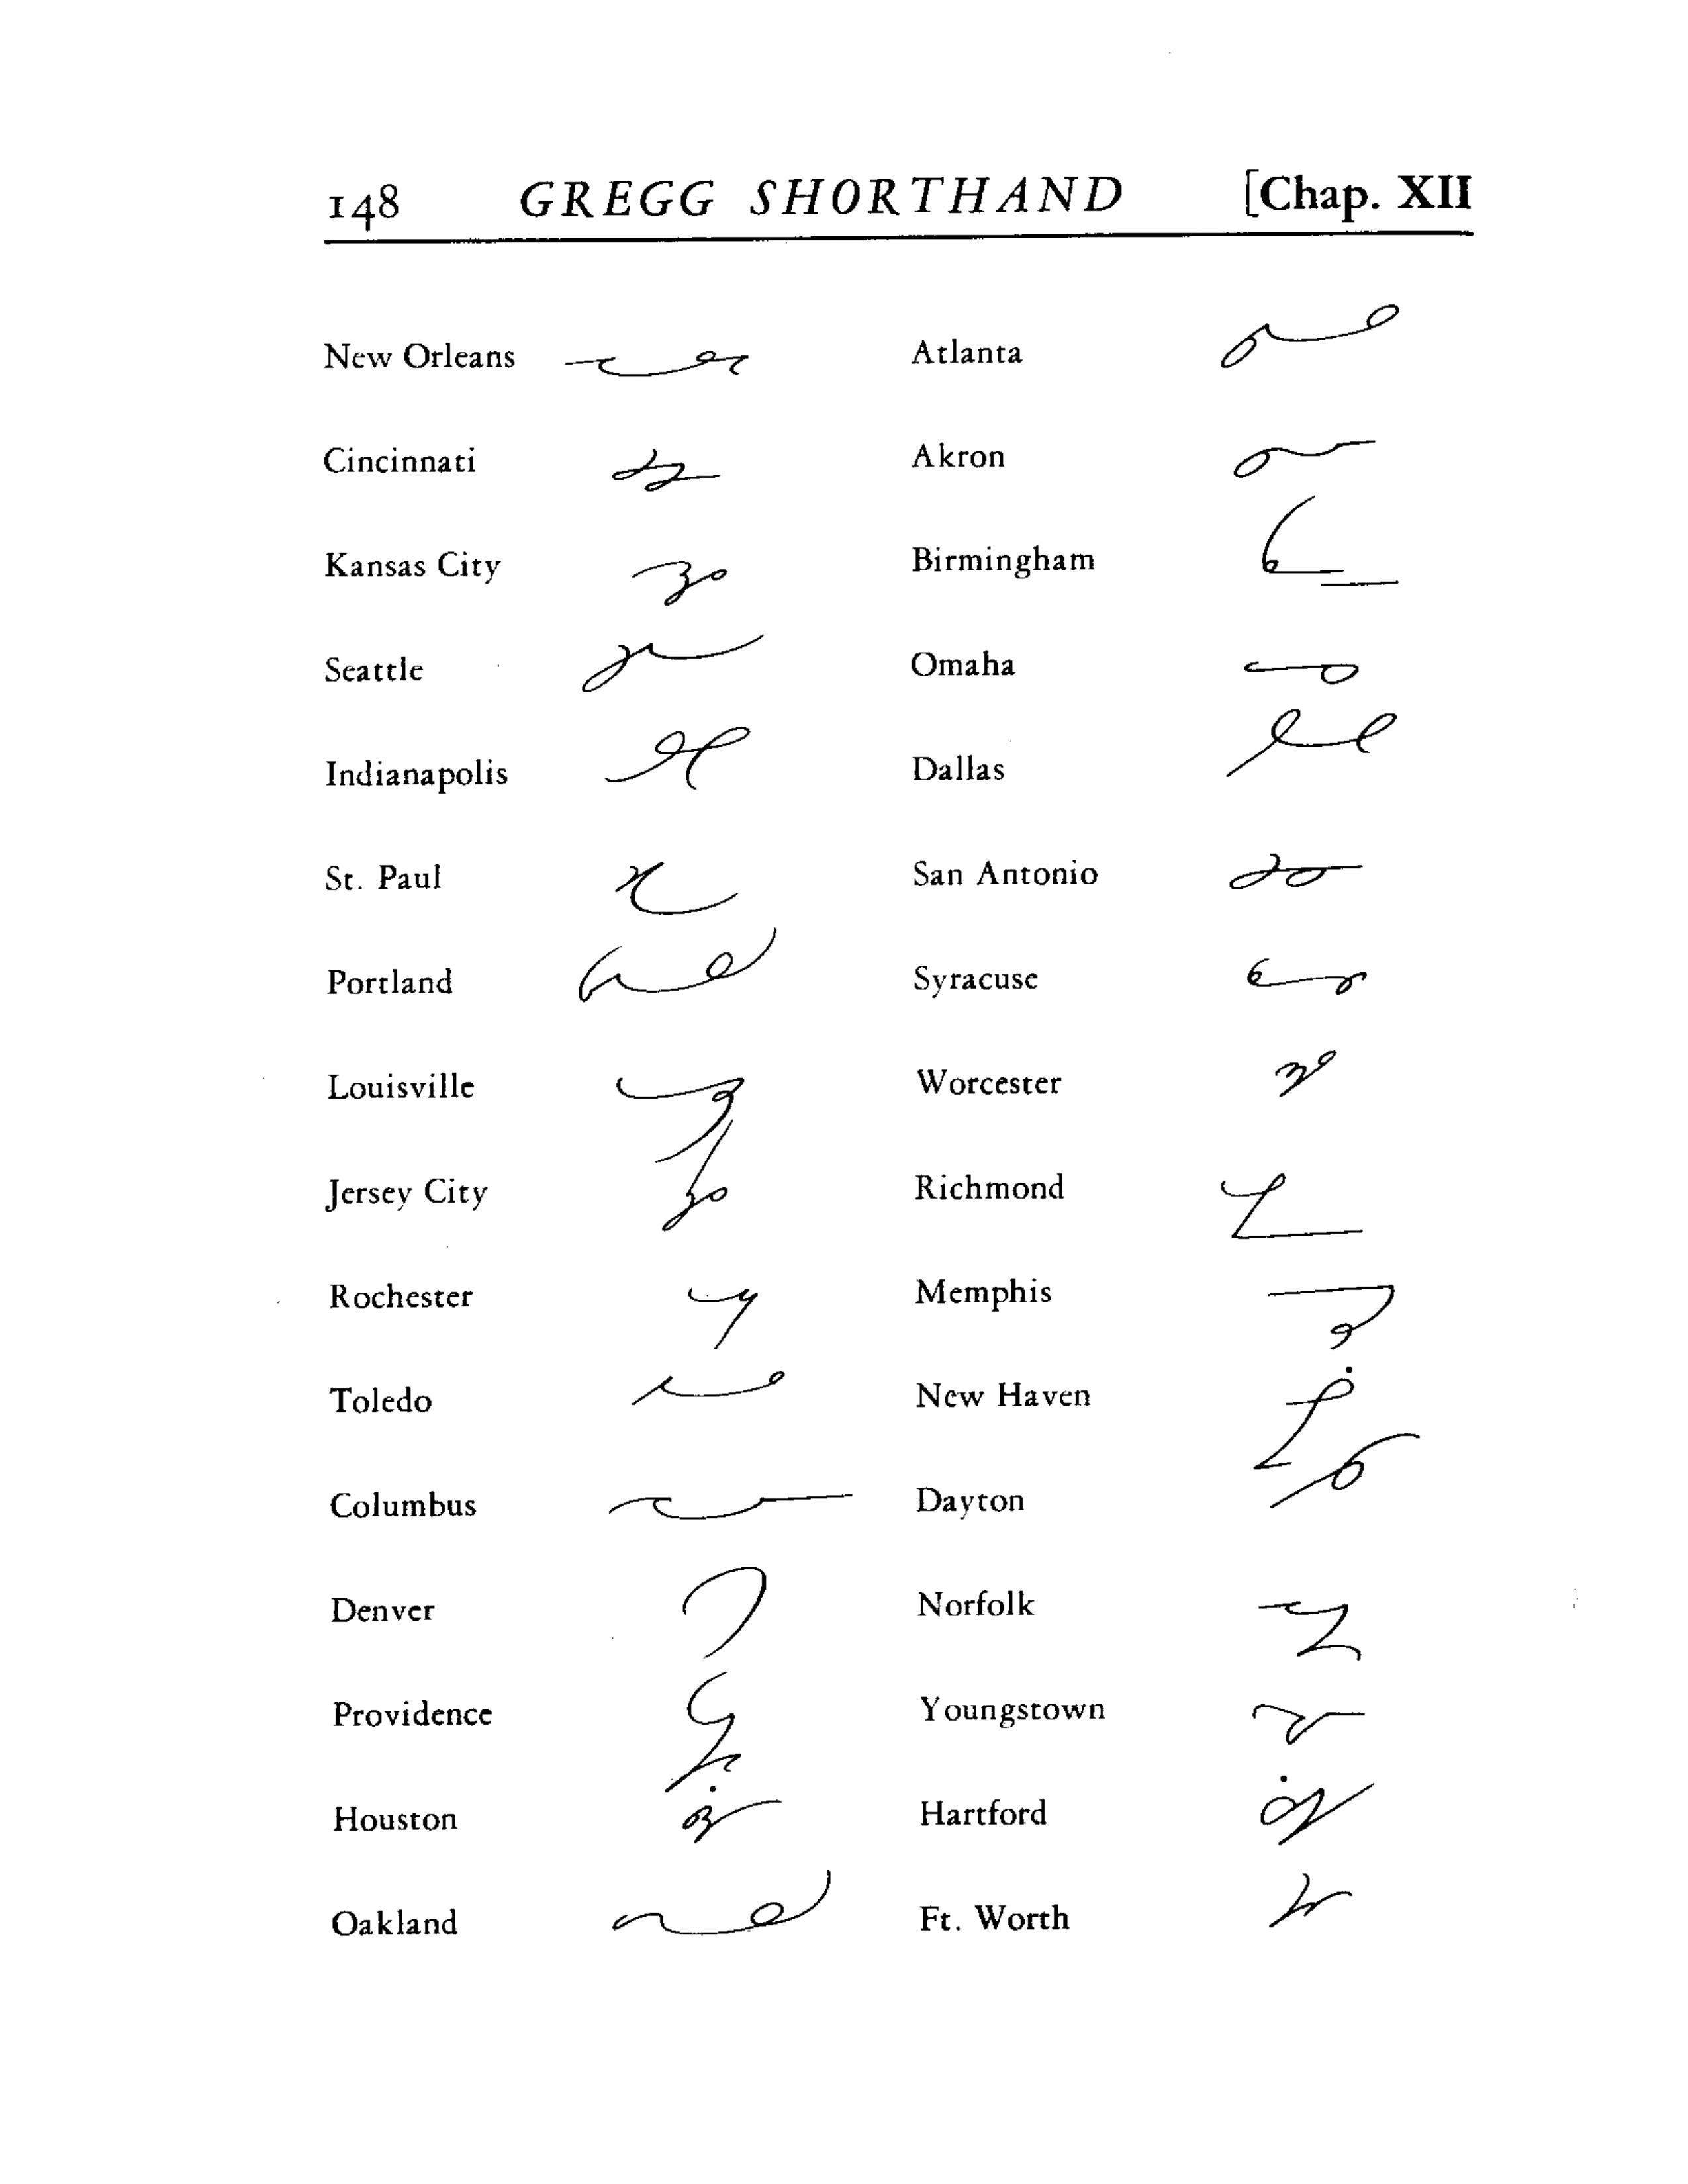 148 GREGG SHORTHAND [Chap. XII
New Orleans Atlanta
Cincinnati Akron
Kansas City Birmingham
Seattle Omaha
Indianapolis Dallas
St. Paul San Antonio
Portland Syracuse
Louisville Worcester
Jersey City Richmond
Rochester Memphis
Toledo New Haven
Columbus Dayton
Denver Norfolk
Providence Youngstown
Houston Hartford
Oakland Ft. Worth